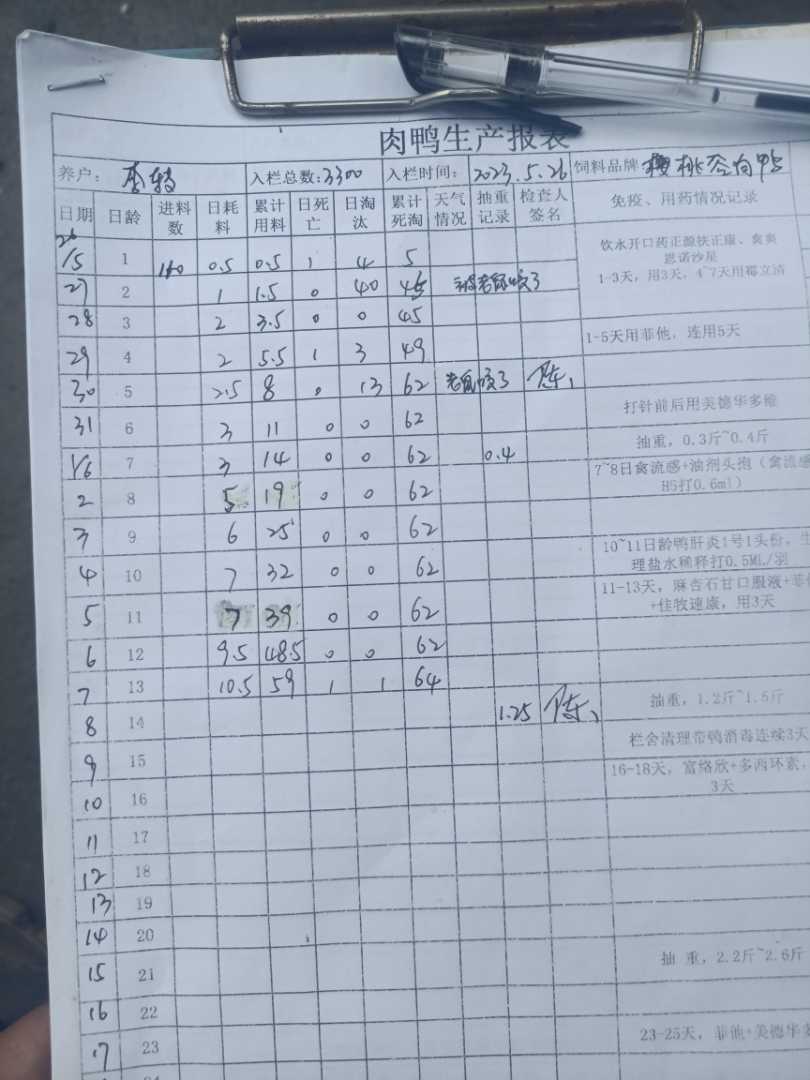 肉鸭生产报表
养户: 李转 入栏总数:3300 入栏时间: 2023.5.26 饲料品牌 樱桃谷肉鸭
日期 日龄 进料数 日耗料 累计用料 日死亡 日淘汰 累计死淘 天气情况 抽重记录 检查人签名 免疫、用药情况记录
26/5 1 160 0.5 0.5 1 4 5 饮水开口药正源扶正康、禽炎
恩诺沙星
27 2 1 1.5 0 40 45 被老鼠咬了 1-3天，用3天，4~7天用霉立清
28 3 2 3.5 0 0 45
29 4 2 5.5 1 3 49 1-5天用菲他，连用5天
30 5 2.5 8 0 13 62 老鼠咬了 陈
31 6 3 11 0 0 62 打针前后用美德华多维
1/6 7 3 14 0 0 62 0.4 抽重，0.3斤~0.4斤
2 8 5 19 0 0 62 7~8日禽流感+油剂头孢（禽流感
H5打0.6ml）
3 9 6 25 0 0 62
4 10 7 32 0 0 62 10~11日龄鸭肝炎1号1头份，生
理盐水稀释打0.5ML/羽
5 11 7 39 0 0 62 11-13天，麻杏石甘口服液+菲他
+佳牧速康，用3天
6 12 9.5 48.5 0 0 62
7 13 10.5 59 1 1 64
8 14 1.25 陈 抽重，1.2斤~1.5斤
9 15 栏舍清理带鸭消毒连续3天
10 16 16-18天，富络欣+多西环素，
3天
11 17
12 18
13 19
14 20
15 21 抽 重，2.2斤~2.6斤
16 22
17 23 23-25天，菲他+美德华多
24